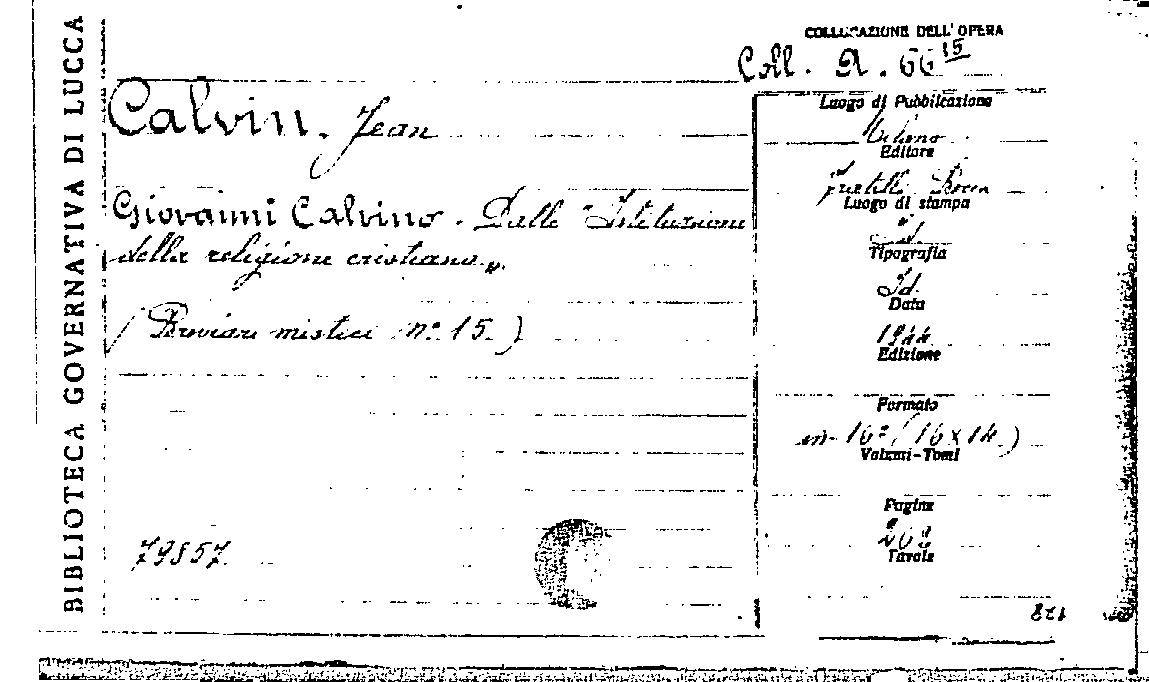 BIBLIOTECA GOVERNATIVA DI LUCCA
COLLOCAZIONE DELL'OPERA
Coll. A. 66 15
Calvin, Jean
Giovanni Calvino. Dalle "Istituzione
della religione cristiana".
(Breviari mistici n.° 15.)
79857.
Luogo di Pubblicazione
Milano
Editore
Fratelli Bocca
Luogo di stampa
Id.
Tipografia
Id.
Data
1944
Edizione
Formato
in-16° (16x14)
Volumi-Tomi
Pagine
202
Tavole